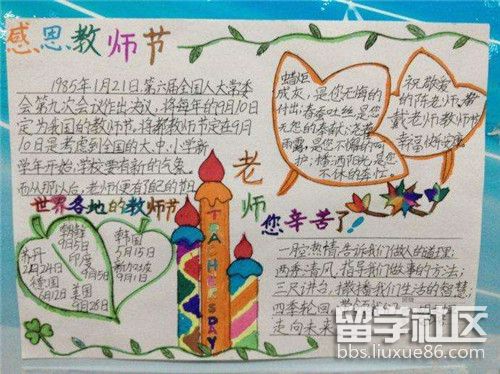 感恩教师节
1985年1月21日,第六届全国人大常委
会第九次会议作出决议,将每年的9月10日
定为我国的教师节,将教师节定在9月
10日是考虑到全国的大、中、小学新
学年开始,学校要有新的气象
而从那以后,老师便有了自己的节日
蜡炬
成灰,是您无悔的
付出;春蚕吐丝,是您
无怨的奉献;
雨露,是您不懈的呵
护;播洒阳光,是您
不休的奉任
祝敬爱
的陈老师、
戴老师教师节
幸福快乐
世界各地的教师节
朝鲜
9月5日
印度
9月5日
苏丹
2月24日
德国
6月12日
美国
9月28日
韩国
5月15日
新加坡
9月1日
老师
您辛苦了!
TEACHER'S DAY
一腔热情,告诉我们做人的道理;
两季清风,指导我们做事的方法;
三尺讲台,播撒我们生活的智慧;
四季轮回
走向未来
留学社区
bbs.liuxue86.com